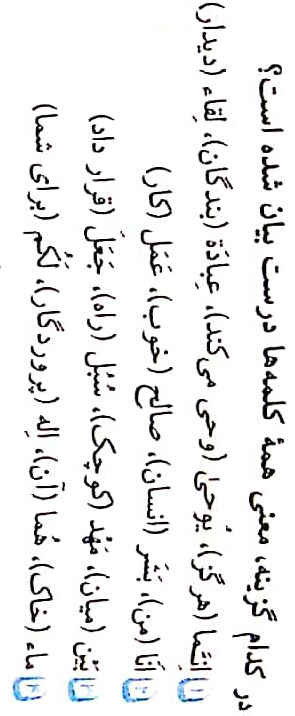 در کدام گزینه، معنی همهٔ کلمه‌ها درست بیان شده است؟
۱ اِنَّما (هرگز)، یُوحیٰ (وحی می‌کند)، عِبادَة (بندگان)، لِقاء (دیدار)
۲ اَنَا (من)، بَشَر (انسان)، صالِح (خوب)، عَمَل (کار)
۳ بَیْن (میان)، مَهْد (کوچک)، سُبُل (راه)، جَعَلَ (قرار داد)
۴ ماء (خاک)، هُما (آن)، اِله (پروردگار)، لَکُم (برای شما)